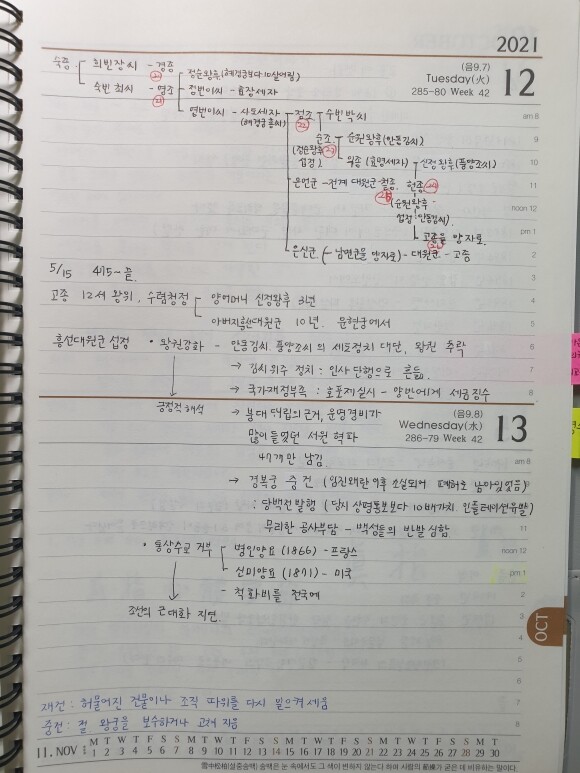 2021
(음9.7)
Tuesday(火)
285-80 Week 42
12
숙종 희빈장씨 - 경종
⑳
숙빈 최씨 - 영조
㉑
정순왕후 (혜경궁보다 10살어림)
정빈이씨 - 효장세자
영빈이씨 - 사도세자
(혜경궁홍씨)
정조 - 수빈박씨
㉒
순조 - 순원왕후(안동김씨)
(정순왕후 ㉓
섭정)
익종 (효명세자) - 신정왕후(풍양조씨)
은언군 - 전계 대원군 철종. 헌종 ㉔
㉕ (순원왕후 -
섭정 안동김씨).
고종을 양자로.
은신군 (- 남연군을 양자로) - 대원군 - 고종
am 8
9
10
11
noon 12
pm 1
2
3
4
5
6
5/15 475~끝.
고종 12세 왕위, 수렴청정 양어머니 신정왕후 3년
아버지흥선대원군 10년. 운현궁에서
흥선대원군 섭정 • 왕권강화 - 안동김씨 풍양조씨의 세도정치 대단, 왕권 추락
→ 김씨위주 정치 : 인사단행으로 흔듦.
→ 국가재정부족 : 호포제실시 - 양반에게 세금징수
긍정적 해석
→ 붕대 대립의 근거, 운영경비가
많이 들였던 서원 혁파
47개만 남김
(음9.8)
Wednesday(水)
286-79 Week 42
13
→ 경복궁 중건 (임진왜란 이후 소실되어 폐허로 남아있었음)
: 당백전발행 (당시 상평통보보다 10배가치. 인플레이션유발)
무리한 공사부담 - 백성들의 반발 심함
• 통상수교 거부 병인양요 (1866) - 프랑스
신미양요 (1871) - 미국
척화비를 전국에
조선의 근대화 지연.
am 8
9
11
noon 12
pm 1
2
3
5
6
7
8
OCT
재건 : 허물어진 건물이나 조직 따위를 다시 일으켜 세움
중건 : 절. 왕궁을 보수하거나 고쳐 지음
11. NOV
M T W T F S S M T W T F S S M T W T F S S M T W T F S S M T
1 2 3 4 5 6 7 8 9 10 11 12 13 14 15 16 17 18 19 20 21 22 23 24 25 26 27 28 29 30
雪中松柏(설중송백) 송백은 눈 속에서도 그 색이 변하지 않는다 하여 사람의 節操가 굳은 데 비유하는 말이다.